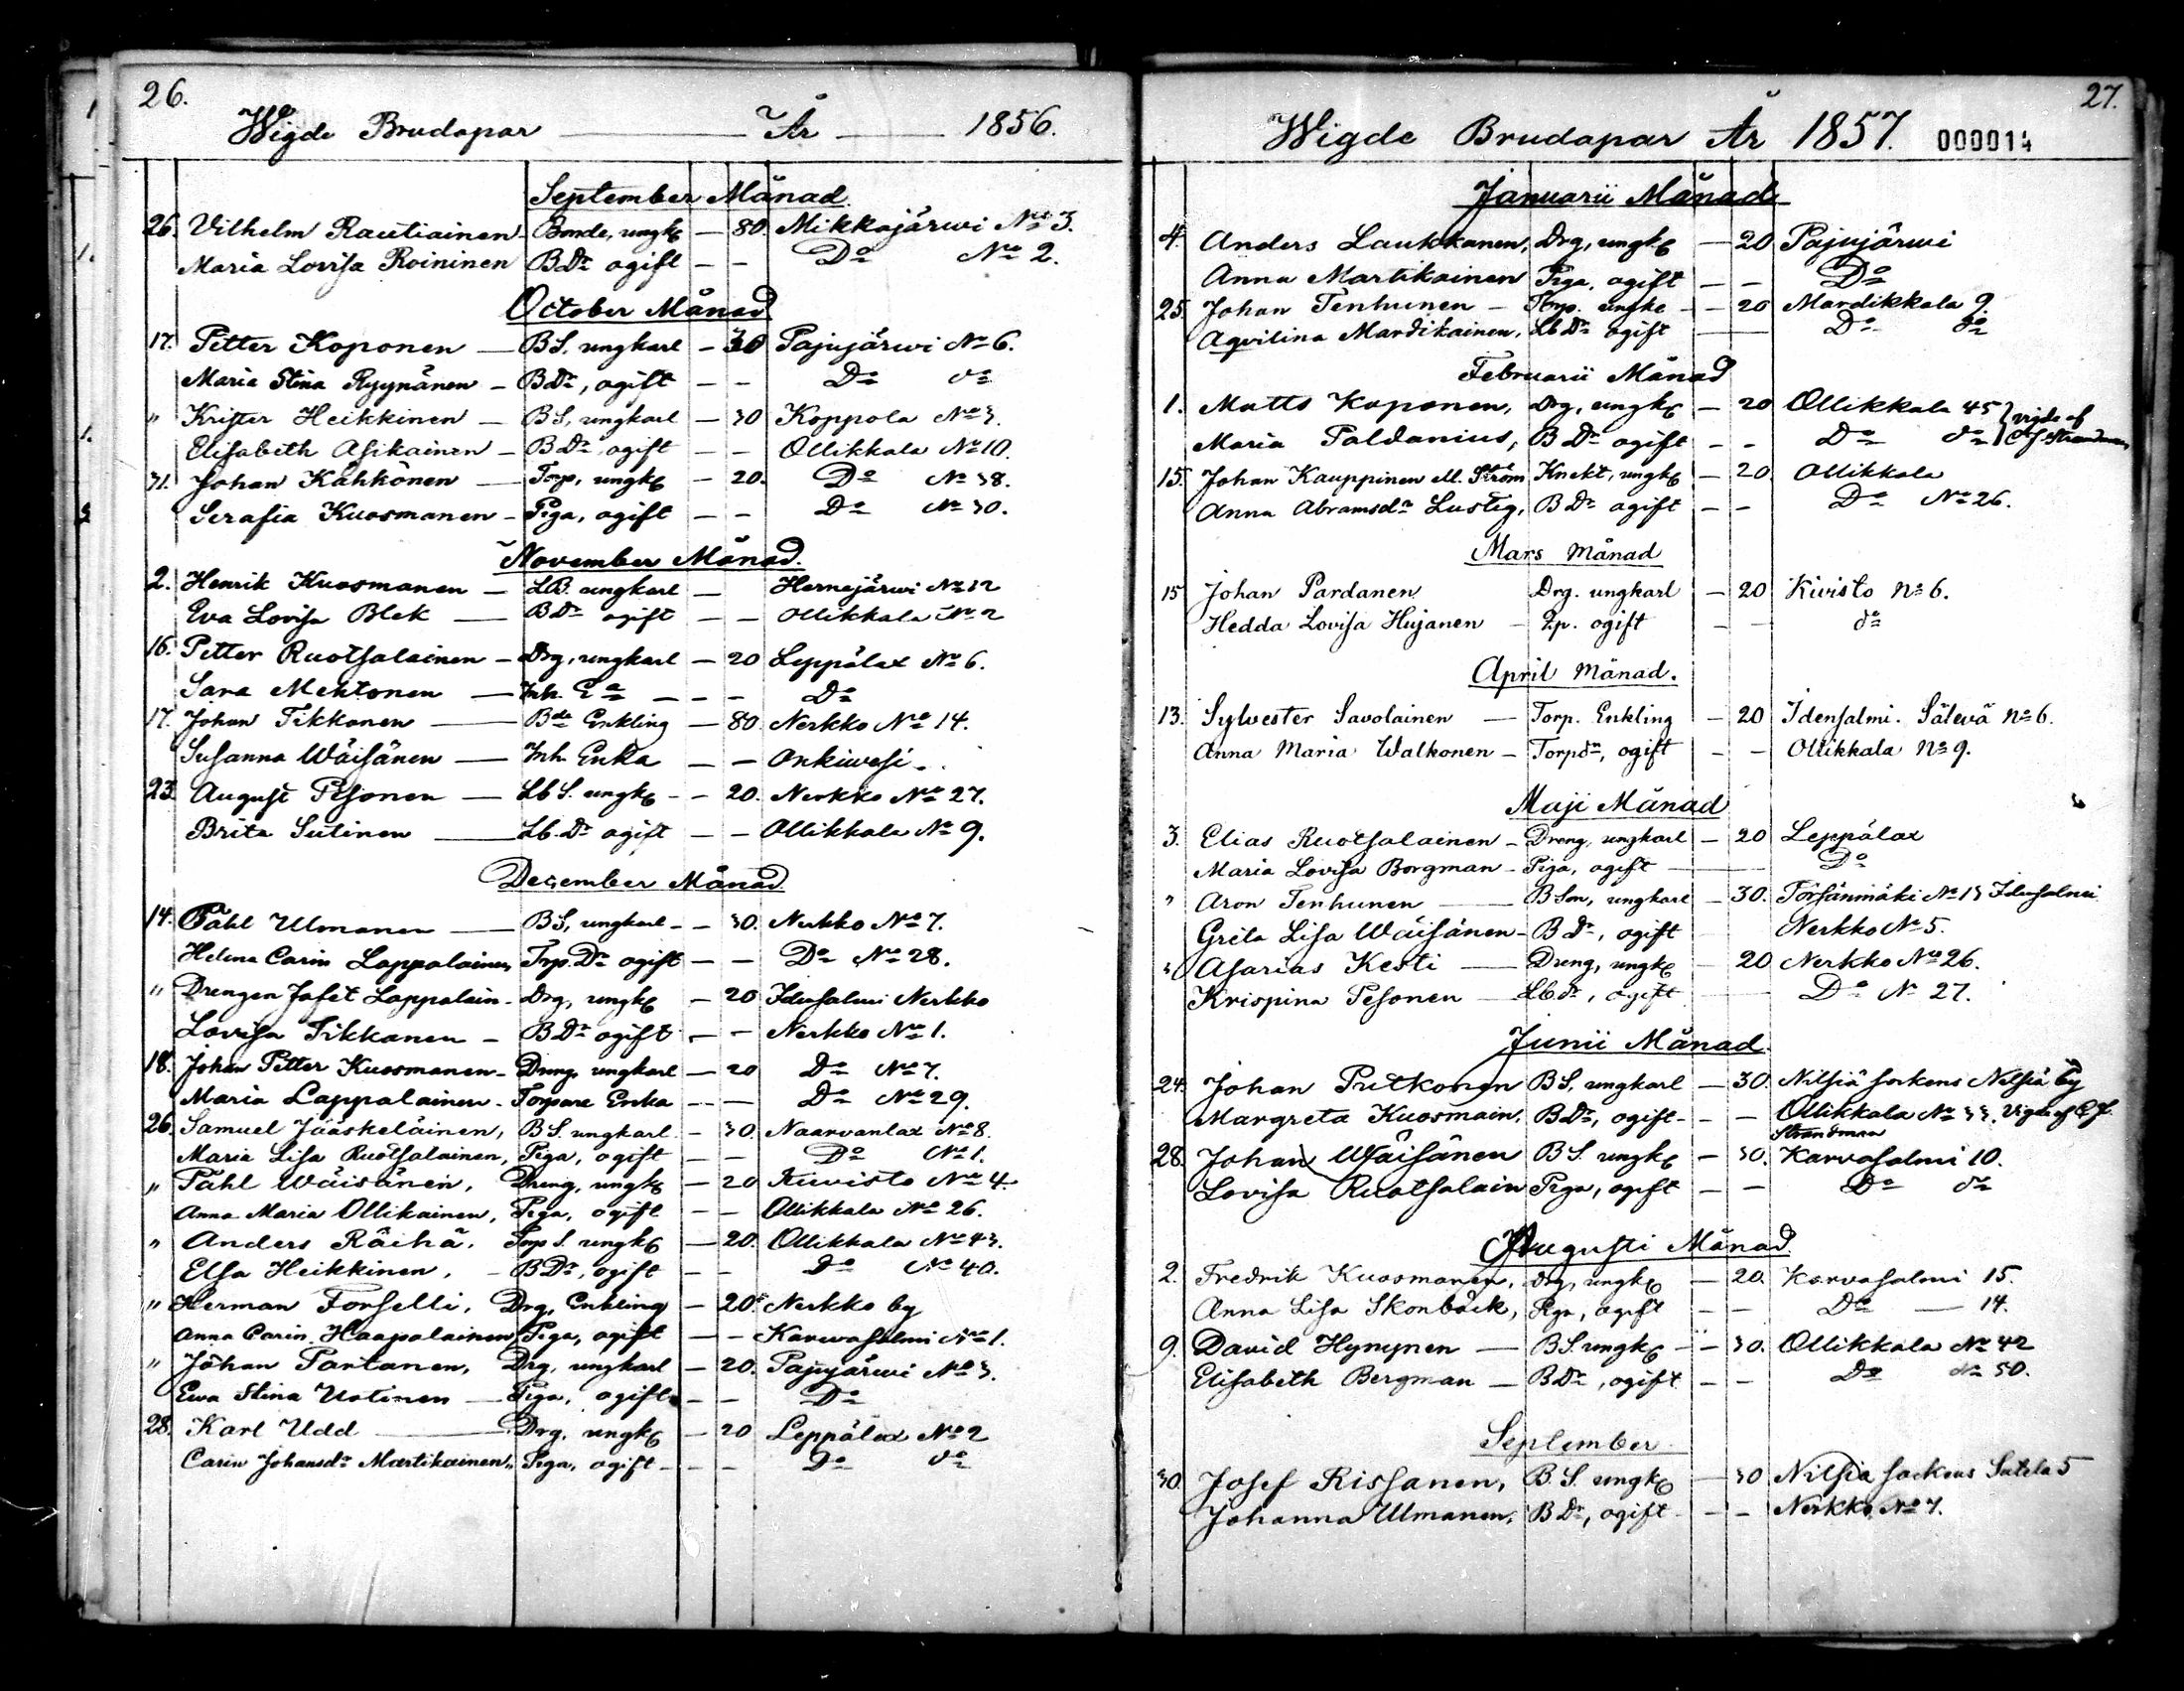 26.
Wigde Brudapar År 1856.
September Månad.
26. Vilhelm Rautiainen - Bonde, ungk — 80. Mikkajärwi No 3.
Maria Lovisa Roininen BDr ogift — — Do No 2.
October Månad
17. Petter Koponen — BS. ungkarl — 30 Pajujärwi No 6.
Maria Stina Ryynänen — BDr, ogift — — Do do
" Krister Heikkinen — BS, ungkarl — 30 Koppola No 3.
Elisabeth Asikainen — BDr ogift — — Ollikkala No 10.
31. Johan Kähkönen — Torp, ungk — 20. Do No 38.
Serafia Kuosmanen — Piga, ogift — — Do No 30.
November Månad.
2. Henrik Kuosmanen — LB. ungkarl — Hernejärwi No 12
Eva Lovisa Blek — BDr ogift — — Ollikkala No 2
16. Petter Ruotsalainen — Drg, ungkarl — 20 Leppälax No 6.
Sara Mehtonen — Inh. Ea — — — Do
17. Johan Tikkanen — Bde Enkling — 80. Nerkko No 14.
Susanna Wäisänen — Inh. Enka — — Onkiwesi.
23. August Pesonen — LbS. ungk — — 20. Nerkko No 27.
Brita Sutinen — Lb. Dr ogift — — Ollikkala No 9.
December Månad
14. Påhl Ulmanen — BS, ungkarl — — 30. Nerkko No 7.
Helena Carin Lappalainen, Trp. Dr ogift — — Do No 28.
" Drengen Jafet Lappalain — Drg, ungk — 20 Idensalmi Nerkko
Lovisa Tikkanen — BDr ogift — — Nerkko No 1.
18. Johan Petter Kuosmanen — Dreng ungkarl — 20 Do No 7.
Maria Lappalainen — Torpare Enka — — Do No 29.
26. Samuel Jääskeläinen, BS. ungkarl — 30. Naarvanlax No 8.
Maria Lisa Ruotsalainen, Piga, ogift — — Do No 1.
" Påhl Wäisänen, Dreng, ungk — 20 Kivisto No 4.
Anna Maria Ollikainen, Piga, ogift — — Ollikkala No 26.
" Anders Räihä, Torp S. ungk — 20. Ollikkala No 43.
Elsa Heikkinen, — BDr, ogift — — Do No 40.
" Herman Forselli, Drg, Enkling — 20. Nerkko by
Anna Carin Haapalainen Piga, ogift — — Karwasalmi No 1.
" Johan Partanen, Drg, ungkarl — 20. Pajujärwi No 3.
Ewa Stina Ustinen — Piga, ogift — — Do
28. Karl Udd — Drg. ungk — 20 Leppälax No 2
Carin Johansdr Martikainen, Piga, ogift — — — Do do
27.
Wigde Brudapar År 1857. 000014
Januarii Månad
4. Anders Laukkanen, Drg, ungk — 20 Pajujärwi
Anna Martikainen Piga, ogift — — Do
25. Johan Tenhunen — Torp. ungk — — 20 Mardikkala 9.
Aqvilina Mardikainen, Lb Dr ogift — Do do
Februarii Månad
1. Matts Koponen, Drg, ungk — 20 Ollikkala 45 } vigde af
Maria Paldanius, B Dr ogift — — Do do } C J Strandman
15. Johan Kauppinen ell. Ström Knekt, ungk — 20. Ollikkala
Anna Abramsdr Lustig, B Dr ogift — — Do No 26.
Mars Månad
15 Johan Pardanen Drg. ungkarl — 20 Kivisto No 6.
Hedda Lovisa Hujanen — Pp. ogift — — do
April Månad.
13. Sylvester Savolainen — Torp. Enkling — 20 Idensalmi. Sälevä No 6.
Anna Maria Walkonen — Torpdr, ogift — — Ollikkala No 9.
Maji Månad
3. Elias Ruotsalainen — Dreng, ungkarl — 20 Leppälax
Maria Lovisa Borgman — Piga, ogift — Do
" Aron Tenhunen — BSon, ungkarl — 30. Törsänmäki No 13 Idensalmi
Greta Lisa Wäisänen — B Dr, ogift Nerkko No 5.
31 Asarias Kesti — Dreng, ungk — 20 Nerkko No 26.
Krispina Pesonen — Lb.dr, ogift — Do No 27.
Junii Månad.
24. Johan Pitkonen BS. ungkarl — 30. Nilsiä sockens Nilsiä by
Margreta Kuosmain, BDr, ogift — — Ollikkala No 33. Vigde af C J.
Strandman
28. Johan Wäisänen BS. ungk — 30. Karvasalmi 10.
Lovisa Ruotsalain Piga, ogift — — Do do
Augusti Månad.
2. Fredrik Kuosmanen, Drg, ungk — 20. Karvasalmi 15.
Anna Lisa Skonbäck, Piga, ogift — — Do — 14.
9. David Hynynen — BS. ungk — — 30. Ollikkala No 42
Elisabeth Bergman — BDr, ogift — — Do No 50.
September
30. Josef Rissanen, B. S. ungk — 30 Nilsiä sockens Sutela 5
Johanna Ulmanen, B Dr, ogift — — Nerkko No 7.